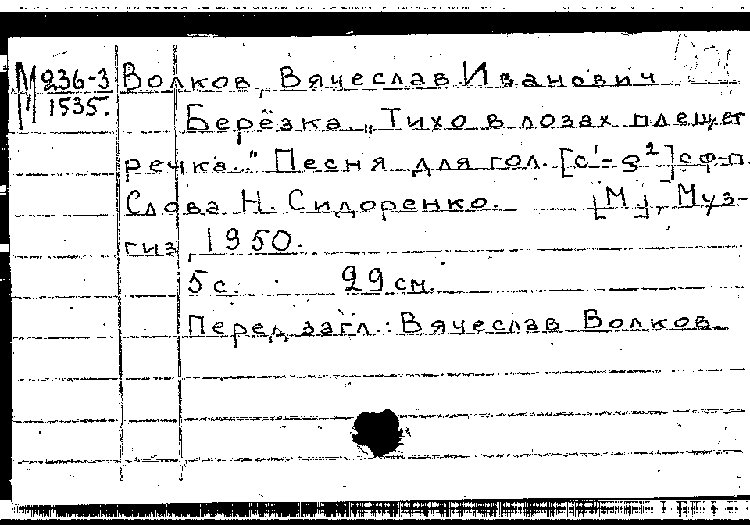 М 236-3 Волков, Вячеслав Иванович
1535.
Берёзка. „Тихо в лозах плещет
речка..." Песня для гол. [c¹-g²] с ф-п.
Слова Н. Сидоренко. [М], Муз-
гиз, 1950.
5 с. 29 см.
Перед загл.: Вячеслав Волков